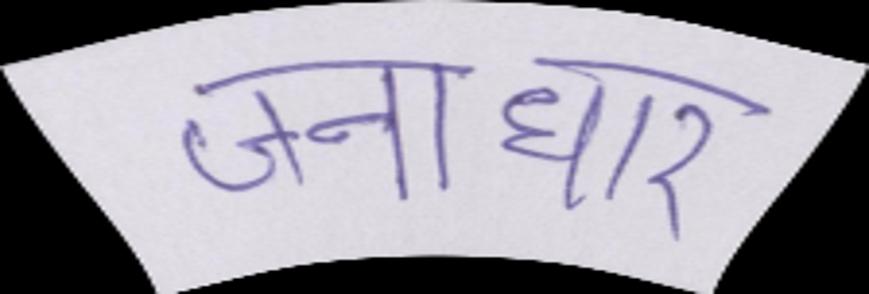 जनाधार